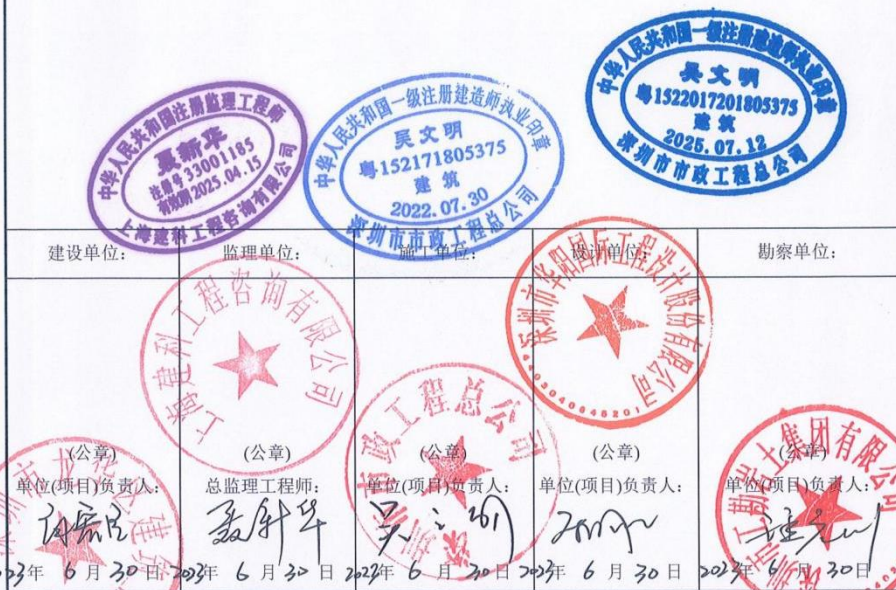 中华人民共和国注册监理工程师
聂新华
注册号33001185
有效期2025.04.15
上海建科工程咨询有限公司
中华人民共和国一级注册建造师执业印章
吴文明
粤152171805375
建筑
2022.07.30
深圳市市政工程总公司
中华人民共和国一级注册建造师执业印章
吴文明
粤1522017201805375
建筑
2025.07.12
深圳市市政工程总公司
建设单位: 监理单位: 施工单位: 设计单位: 勘察单位:
上海建科工程咨询有限公司
深圳市华阳国际工程设计股份有限公司
市政工程总公司
深圳市龙华 建筑
圳市工勘岩土集团有限公司
(公章) (公章) (公章) (公章) (公章)
单位(项目)负责人: 总监理工程师: 单位(项目)负责人: 单位(项目)负责人: 单位(项目)负责人:
聂新华 吴文明
23年 6 月 30 日 2023年 6 月 30 日 2023年 6 月 30 日 2023年 6 月 30 日 2023年 6 月 30 日